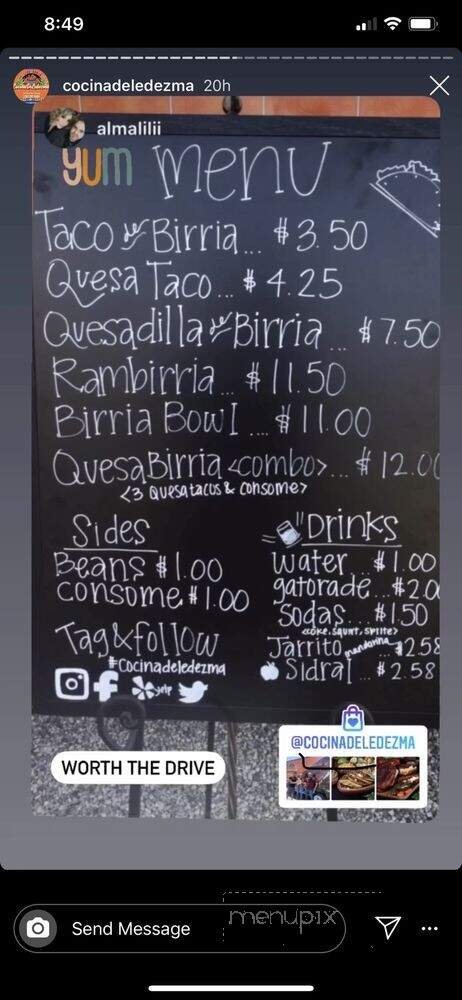 8:49
cocinadeledezma 20h
almalilii
yum Menu
Taco de Birria... $3.50
Quesa Taco... $4.25
Quesadilla de Birria... $7.50
Rambirria... $11.50
Birria Bowl.... $11.00
QuesaBirria <combo>... $12.00
<3 Quesatacos & consome>
Sides
Beans $1.00
consome $1.00
Drinks
water... $1.00
gatorade...$2.0
Sodas...$1.50
<coke, squrt, sprite>
Jarrito mandarina...$2.58
Sidral...$2.58
Tag & follow
#Cocinadeledezma
yelp
@COCINADELEDEZMA
WORTH THE DRIVE
Send Message
menupix